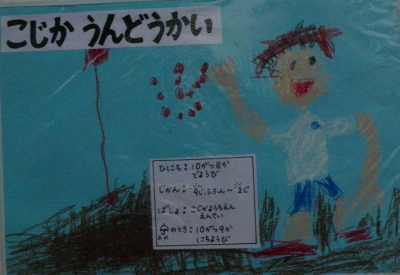 こじか うんどうかい
ひにち：10がつ8か
どようび
じかん：9じ
～2じ
ばしょ：こじかようちえん
えんてい
のとき：10がつ9か
にちようび